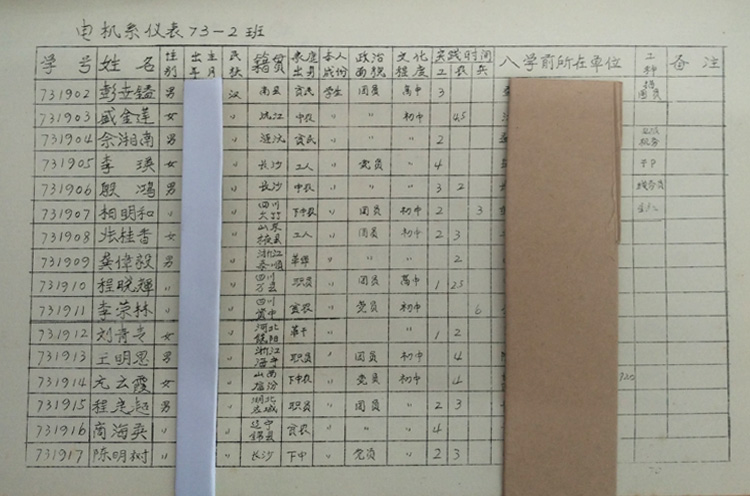 电机系仪表73-2班
学号 姓名 性别 出 年 生 月 民族 籍贯 家庭出身 本人成份 政治面貌 文化程度 实践时间 工 农 兵 入学前所在单位 工种 备注
731902 男 汉 贫农 学生 团员 高中 3
731903 盛金莲 女 〃 沅江 中农 〃 〃 初中 45
731904 余湘南 〃 〃 贫民 〃 〃 〃 2
731905 李瑛 女 〃 长沙 工人 〃 党员 〃 4
731906 殷鸿 男 〃 长沙 中农 〃 〃 〃 3 2
731907 相明和 〃 〃 四川 下中农 〃 团员 初中 2 3
731908 张桂香 女 〃 山东掖县 工人 〃 团员 〃 2 3
731909 龚伟毅 男 〃 浙江泰顺 〃 〃 2
731910 程晓辉 〃 〃 四川万县 职员 〃 团员 高中 1 25
731911 李荣林 〃 〃 四川资中 贫农 〃 党员 初中 6
731912 女 〃 河北饶阳 革干 〃 〃 1 2
731913 王明恩 男 〃 浙江海宁 职员 〃 团员 初中 4
731914 亢云霞 女 〃 下中农 〃 党员 〃 4
731915 男 〃 湖北 职员 〃 团员 〃 2 3
731916 商海奕 〃 〃 辽宁锦县 贫农 〃 〃 4
731917 陈明树 〃 〃 长沙 下中 〃 党员 〃 2 3